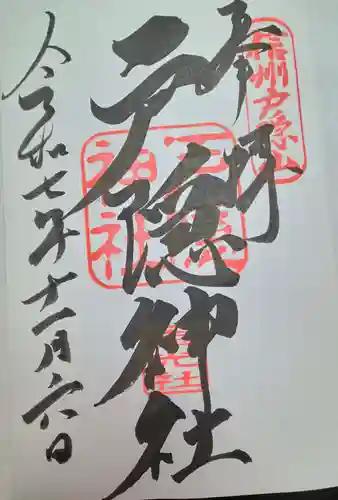 奉拝
信州戸隠山
戸隠神社
戸隠神社
令和七年十一月六日